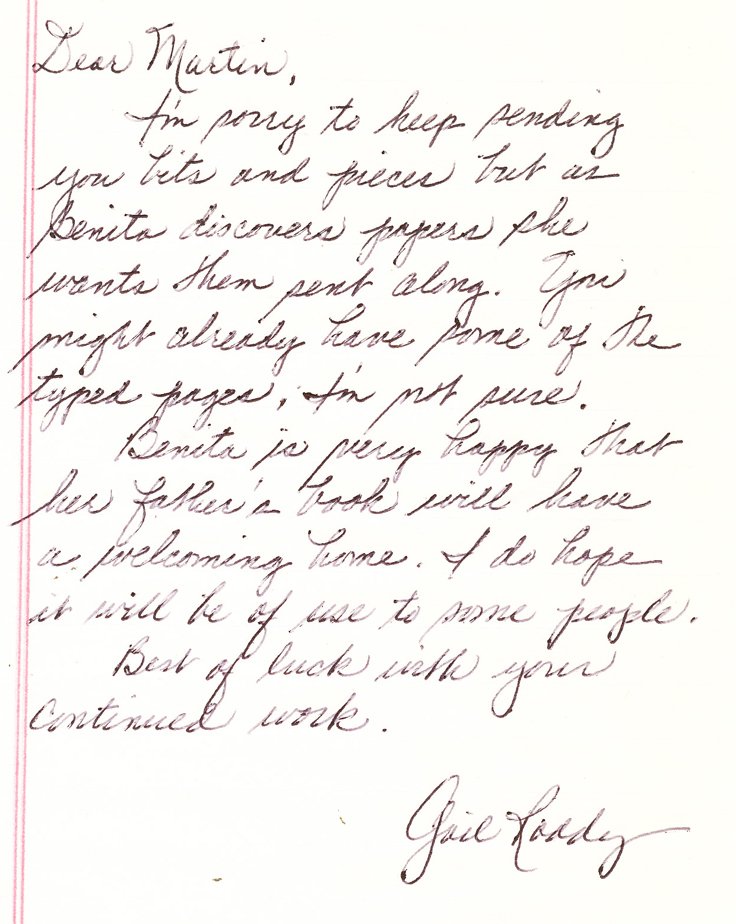 Dear Martin,
I'm sorry to keep sending
you bits and pieces but as
Benita discovers papers she
wants them sent along. You
might already have some of the
typed pages, I'm not sure.
Benita is very happy that
her father's book will have
a welcoming home. I do hope
it will be of use to some people.
Best of luck with your
continued work.
Gail